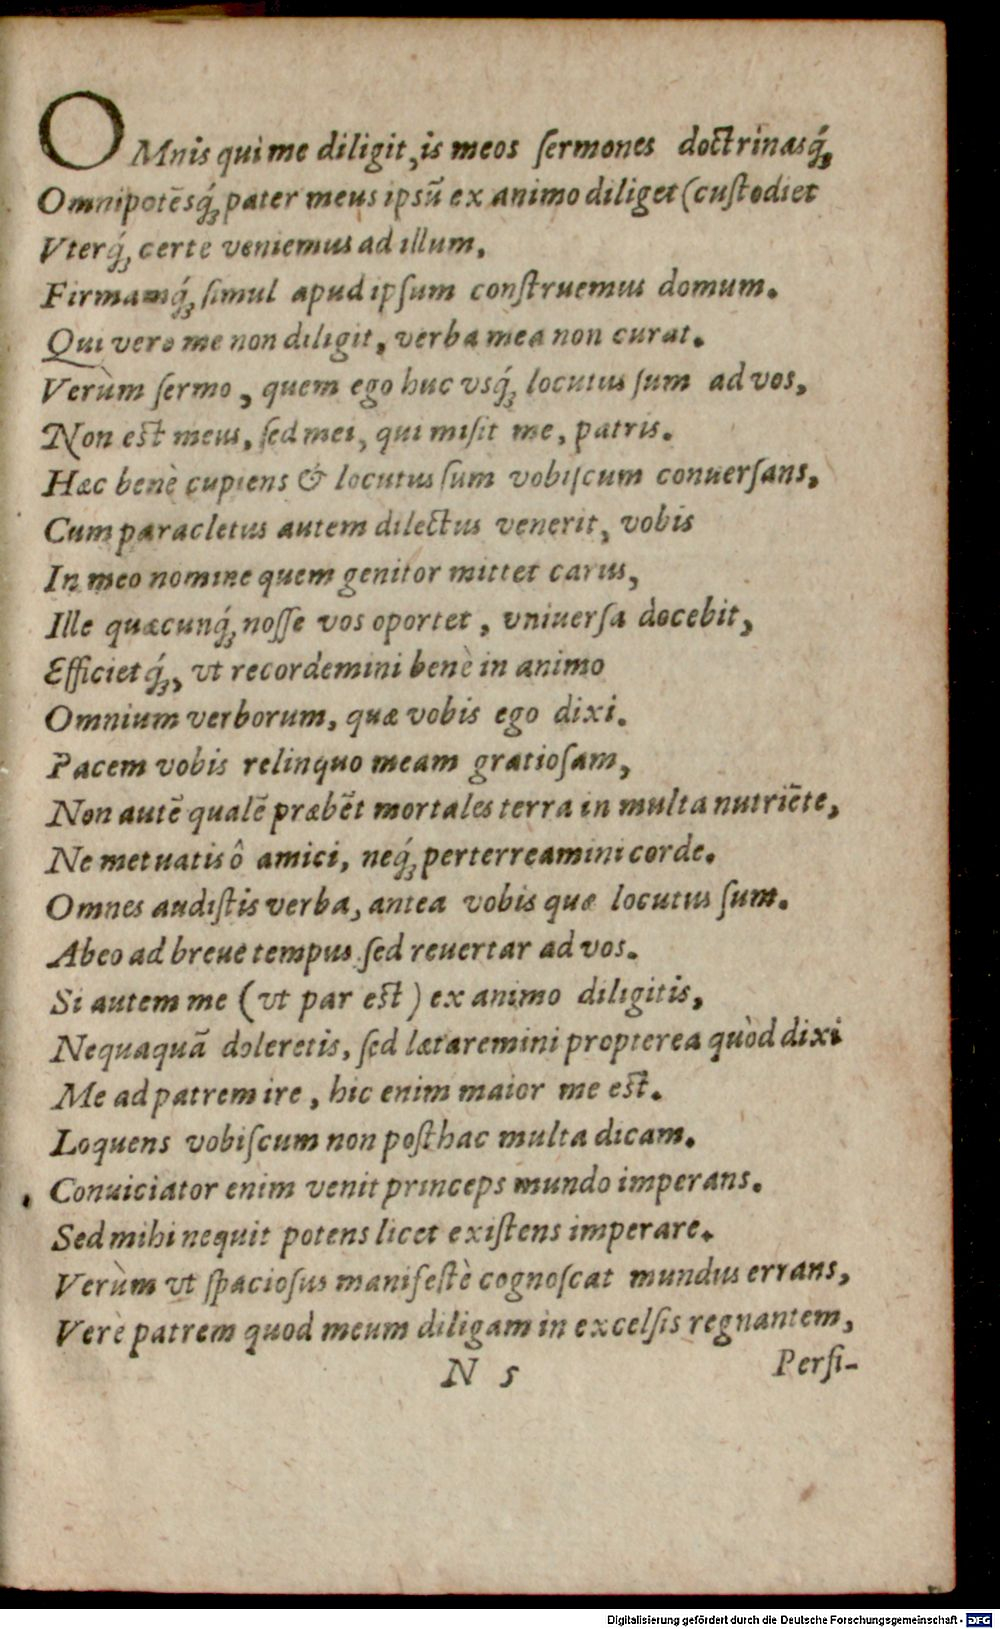 OMnis qui me diligit, is meos ſermones doctrinasq́;
Omnipotẽsq́; pater meus ipsũ ex animo diliget (cuſtodiet
Vterq́; certe veniemus ad illum.
Firmamq́; ſimul apud ipſum conſtruemus domum.
Qui vero me non diligit, verba mea non curat.
Verùm ſermo, quem ego huc vsq́; locutus ſum ad vos,
Non est meus, ſed mei, qui miſit me, patris.
Hæc benè cupiens & locutus ſum vobiſcum conuerſans.
Cum paracletus autem dilectus venerit, vobis
In meo nomine quem genitor mittet carus,
Ille quæcunq́; noſſe vos oportet, vniuerſa docebit,
Efficietq́;, vt recordemini benè in animo
Omnium verborum, quæ vobis ego dixi.
Pacem vobis relinquo meam gratioſam,
Non autẽ qualẽ præbẽt mortales terra in multa nutriẽte,
Ne metuatis ô amici, neq́; perterreamini corde.
Omnes audiſtis verba, antea vobis quæ locutus ſum.
Abeo ad breue tempus ſed reuertar ad vos.
Si autem me (vt par est) ex animo diligitis,
Nequaquã doleretis, ſed lætaremini propterea quòd dixi
Me ad patrem ire, hic enim maior me est.
Loquens vobiſcum non poſthac multa dicam.
Conuiciator enim venit princeps mundo imperans.
Sed mihi nequit potens licet exiſtens imperare.
Verùm vt ſpacioſus manifeſtè cognoſcat mundus errans,
Verè patrem quod meum diligam in excelſis regnantem,
N 5
Perſi-
Digitalisierung gefördert durch die Deutsche Forschungsgemeinschaft - DFG